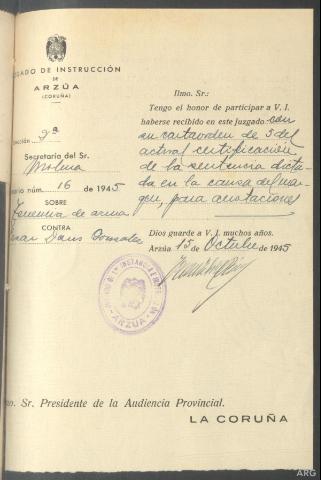 JUZGADO DE INSTRUCCIÓN
DE
ARZÚA
(CORUÑA)
Sección 2ª
Secretaría del Sr.
Molina
Sumario núm. 16 de 1945
SOBRE
Tenencia de arma
CONTRA
Gonzalez
Ilmo. Sr.:
Tengo el honor de participar a V. I.
haberse recibido en este juzgado con
su cartaorden de 3 del
actual certificación
de la sentencia dicta-
da en la causa del mar-
gen, para anotaciones
Dios guarde a V. I. muchos años.
Arzúa 15 de Octubre de 1945
ARZUA
Ilmo. Sr. Presidente de la Audiencia Provincial.
LA CORUÑA
ARG